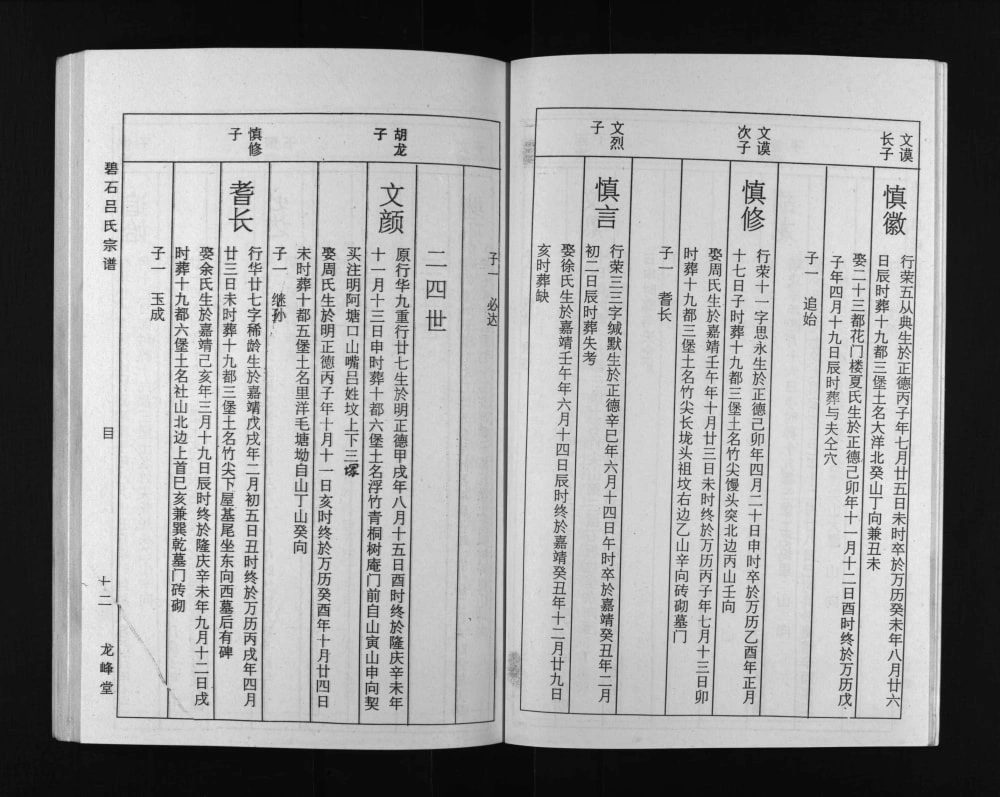 文谟
长子
慎徽
行荣五从典生於正德丙子年七月廿五日未时卒於万历癸未年八月廿六
日辰时葬十九都三堡土名大洋北癸山丁向兼丑未
娶二十三都花门楼夏氏生於正德己卯年十一月十二日酉时终於万历戊
子年四月十九日辰时葬与夫仝穴
子一 追始
文谟
次子
慎修
行荣十一字思永生於正德己卯年四月二十日申时卒於万历乙酉年正月
十七日子时葬十九都三堡土名竹尖馒头突北边丙山壬向
娶周氏生於嘉靖壬午年十月廿三日未时终於万历丙子年七月十三日卯
时葬十九都三堡土名竹尖长垅头祖坟右边乙山辛向砖砌墓门
子一 耆长
文烈
子
慎言
行荣三三字缄默生於正德辛巳年六月十四日午时卒於嘉靖癸丑年二月
初二日辰时葬失考
娶徐氏生於嘉靖壬午年六月十四日辰时终於嘉靖癸丑年十二月廿九日
亥时葬缺
子一 必达
二四世
胡龙
子
文颜
原行华九重行廿七生於明正德甲戌年八月十五日酉时终於隆庆辛未年
十一月十三日申时葬十都六堡土名浮竹青桐树庵门前自山寅山申向契
买注明阿塘口山嘴吕姓坟上下三塚
娶周氏生於明正德丙子年十月十一日亥时终於万历癸酉年十月廿四日
未时葬十都五堡土名里洋毛塘坳自山丁山癸向
子一 继孙
慎修
子
耆长
行华廿七字稀龄生於嘉靖戊戌年二月初五日丑时终於万历丙戌年四月
廿三日未时葬十九都三堡土名竹尖下屋基尾坐东向西墓后有碑
娶余氏生於嘉靖己亥年三月十九日辰时终於隆庆辛未年九月十二日戌
时葬十九都六堡土名社山北边上首巳亥兼巽乾墓门砖砌
子一 玉成
碧石吕氏宗谱
目
十二
龙峰堂